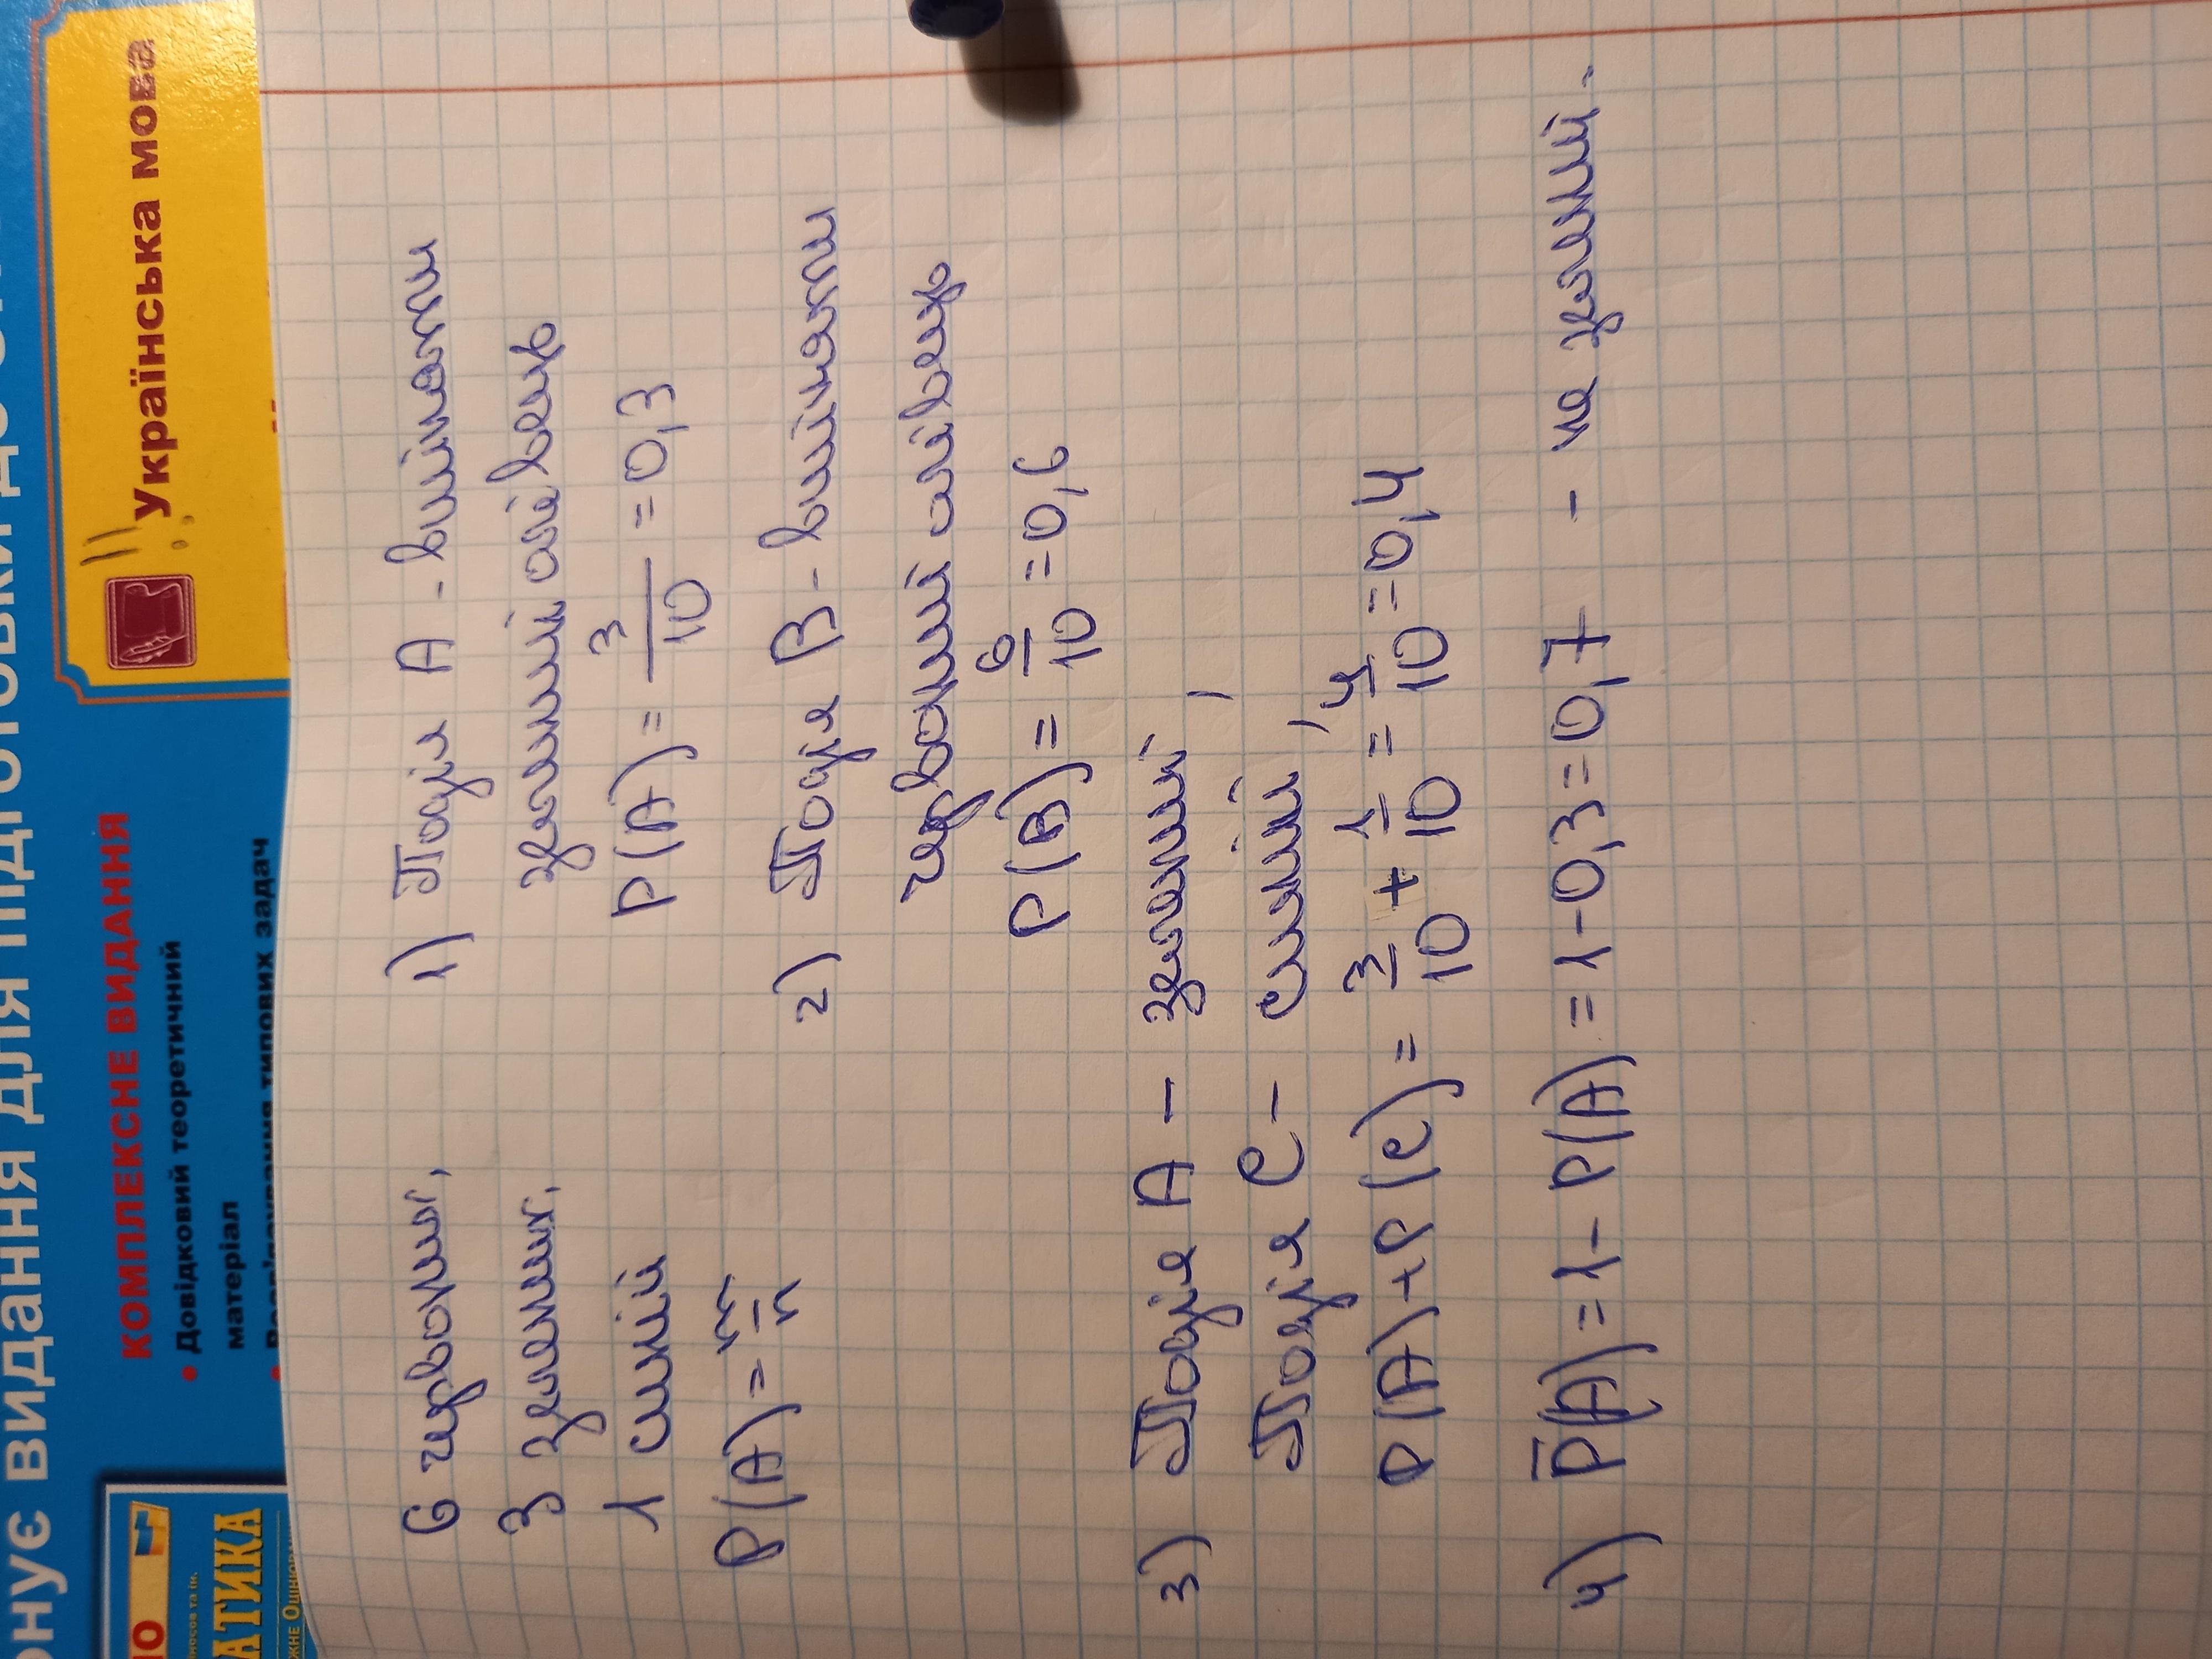 онує видання для підготовки до
Українська мова
КОМПЛЕКСНЕ ВИДАННЯ
• Довідковий теоретичний
матеріал
типових задач
АТИКА
6 червоних,
3 зелених,
1 синій
P(A) = m/n
1) Подія A - вийняти
зелений олівець
P(A) = 3/10 = 0,3
2) Подія B - вийняти
червоний олівець
P(B) = 6/10 = 0,6
3) Подія A – зелений,
Подія C – синій,
P(A)+P(C) = 3/10 + 1/10 = 4/10 = 0,4
4) P̅(A) = 1 - P(A) = 1 - 0,3 = 0,7 - не зелений.